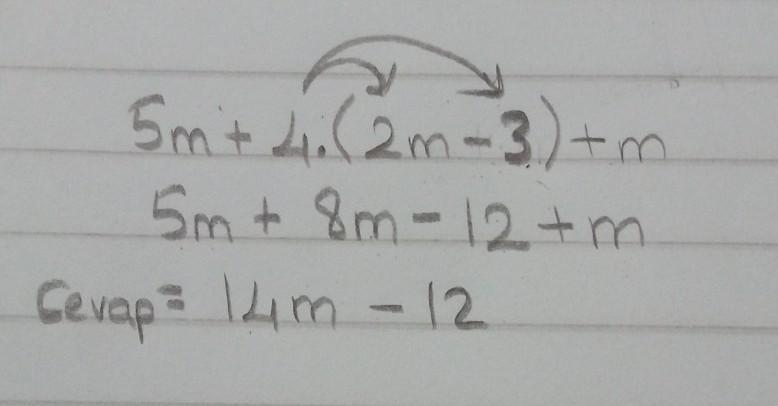 5m + 4.(2m - 3) + m
5m + 8m - 12 + m
Cevap = 14m - 12